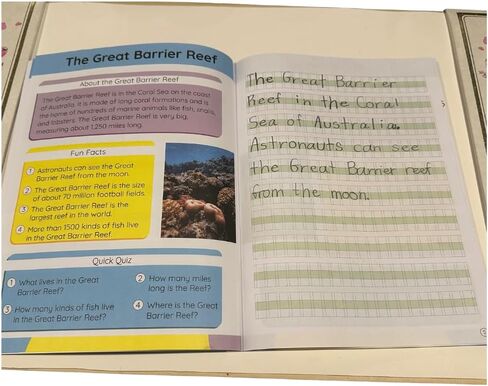 The Great Barrier Reef
About the Great Barrier Reef
The Great Barrier Reef is in the Coral Sea on the coast
of Australia. It is made of long coral formations and is
the home of hundreds of marine animals like fish, snails,
and lobsters. The Great Barrier Reef is very big,
measuring about 1,250 miles long.
Fun Facts
1 Astronauts can see the Great
Barrier Reef from the moon.
2 The Great Barrier Reef is the size
of about 70 million football fields.
3 The Great Barrier Reef is the
largest reef in the world.
4 More than 1500 kinds of fish live
in the Great Barrier Reef.
Quick Quiz
1 What lives in the Great
Barrier Reef?
2 How many miles
long is the Reef?
3 How many kinds of fish live
in the Great Barrier Reef?
4 Where is the Great
Barrier Reef?
The Great Barrier
Reef in the Coral
Sea of Australia.
Astronauts can see
the Great Barrier reef
from the moon.